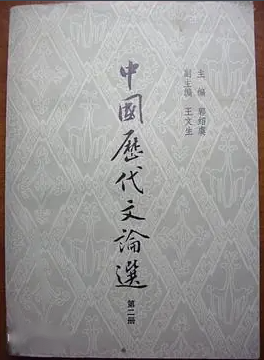 中國歷代文論選
第二册
主編 郭紹虞
副主編 王文生